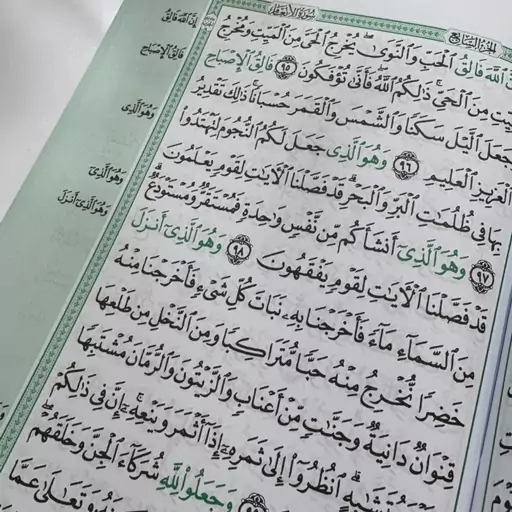 سُورَةُ الأَنْعَامِ
الجُزْءُ السَّابِعُ
إِنَّ ٱللَّهَ فَالِقُ
فَالِقُ ٱلْإِصْبَاحِ
وَهُوَ ٱلَّذِى
وَهُوَ ٱلَّذِى
وَهُوَ ٱلَّذِىٓ أَنزَلَ
ٱللَّهَ فَالِقُ ٱلْحَبِّ وَٱلنَّوَىٰ يُخْرِجُ ٱلْحَىَّ مِنَ ٱلْمَيِّتِ وَمُخْرِجُ
ٱلْمَيِّتِ مِنَ ٱلْحَىِّ ذَٰلِكُمُ ٱللَّهُ فَأَنَّىٰ تُؤْفَكُونَ ٩٥ فَالِقُ ٱلْإِصْبَاحِ
وَجَعَلَ ٱلَّيْلَ سَكَنًا وَٱلشَّمْسَ وَٱلْقَمَرَ حُسْبَانًا ذَٰلِكَ تَقْدِيرُ
ٱلْعَزِيزِ ٱلْعَلِيمِ ٩٦ وَهُوَ ٱلَّذِى جَعَلَ لَكُمُ ٱلنُّجُومَ لِتَهْتَدُوا۟
بِهَا فِى ظُلُمَٰتِ ٱلْبَرِّ وَٱلْبَحْرِ قَدْ فَصَّلْنَا ٱلْءَايَٰتِ لِقَوْمٍ يَعْلَمُونَ
٩٧ وَهُوَ ٱلَّذِىٓ أَنشَأَكُم مِّن نَّفْسٍ وَٰحِدَةٍ فَمُسْتَقَرٌّ وَمُسْتَوْدَعٌ
قَدْ فَصَّلْنَا ٱلْءَايَٰتِ لِقَوْمٍ يَفْقَهُونَ ٩٨ وَهُوَ ٱلَّذِىٓ أَنزَلَ
مِنَ ٱلسَّمَآءِ مَآءً فَأَخْرَجْنَا بِهِۦ نَبَاتَ كُلِّ شَىْءٍ فَأَخْرَجْنَا مِنْهُ
خَضِرًا نُّخْرِجُ مِنْهُ حَبًّا مُّتَرَاكِبًا وَمِنَ ٱلنَّخْلِ مِن طَلْعِهَا
قِنْوَانٌ دَانِيَةٌ وَجَنَّٰتٍ مِّنْ أَعْنَابٍ وَٱلزَّيْتُونَ وَٱلرُّمَّانَ مُشْتَبِهًا
مُتَشَٰبِهٍ ٱنظُرُوٓا۟ إِلَىٰ ثَمَرِهِۦٓ إِذَآ أَثْمَرَ وَيَنْعِهِۦٓ إِنَّ فِى ذَٰلِكُمْ
وَجَعَلُوا۟ لِلَّهِ شُرَكَآءَ ٱلْجِنَّ وَخَلَقَهُمْ
وَتَعَٰلَىٰ عَمَّا